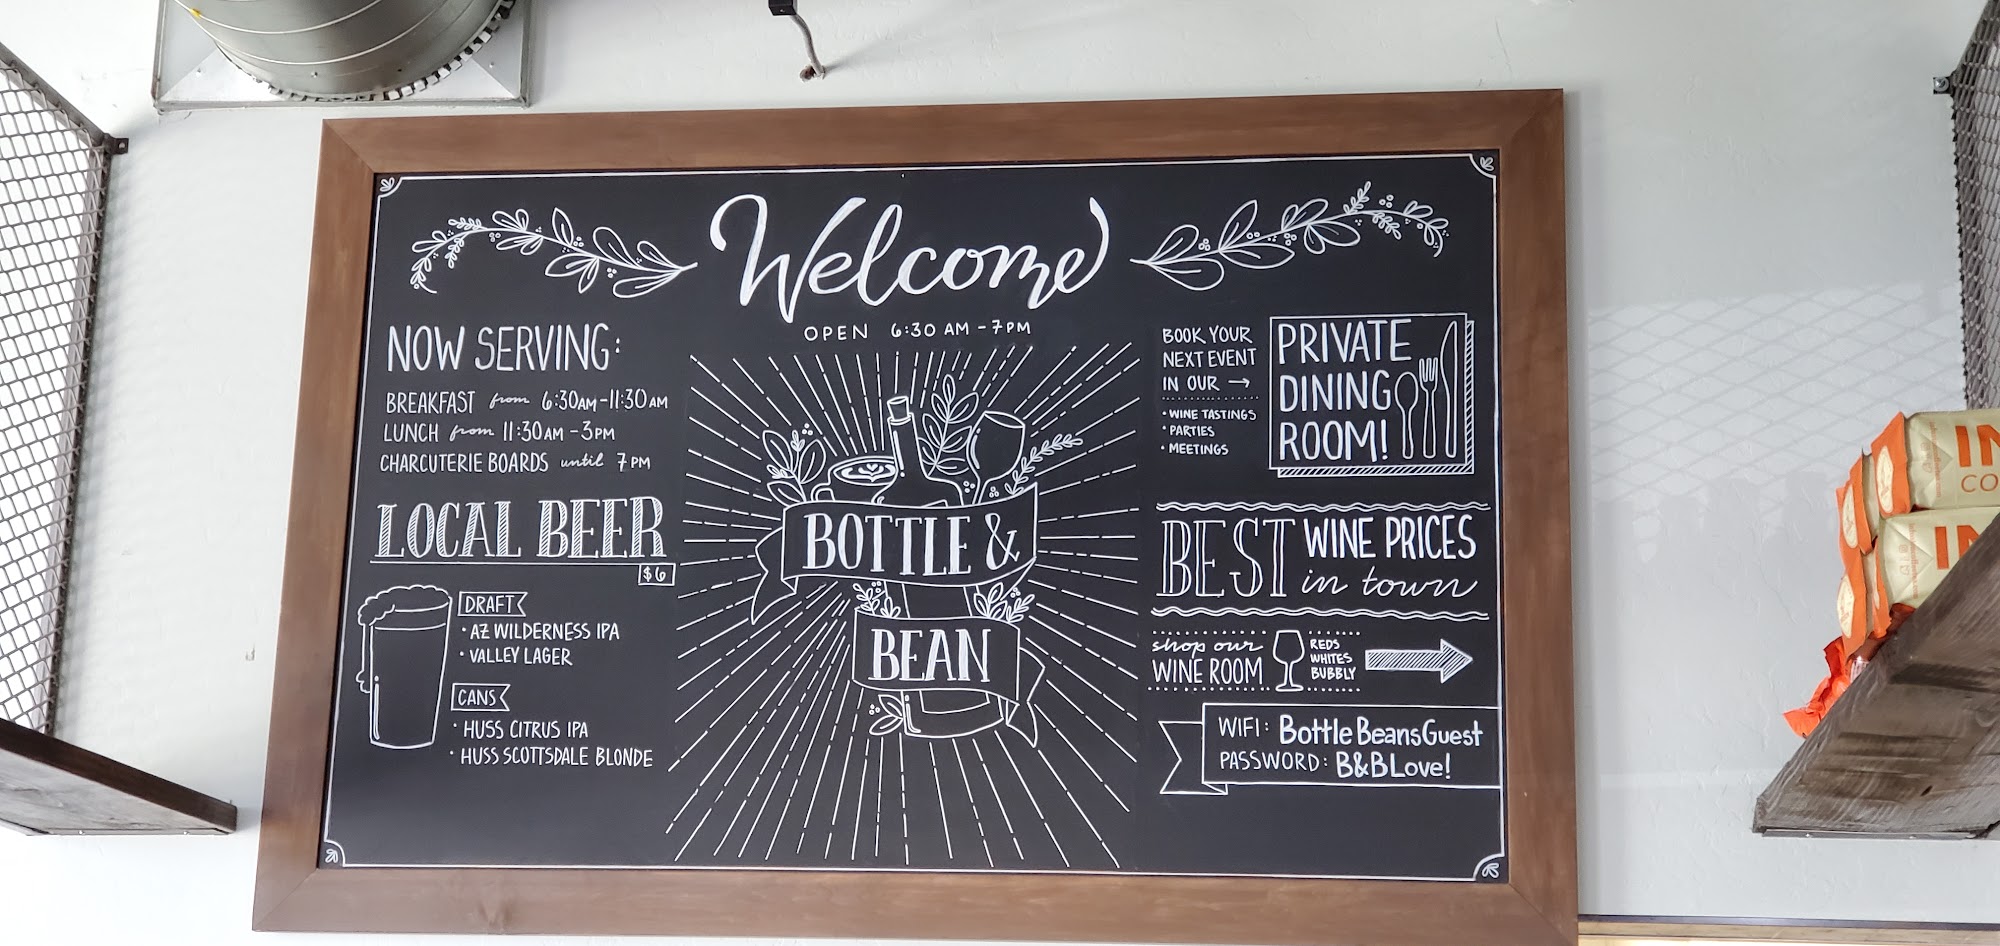 Welcome
OPEN 6:30 AM - 7PM
NOW SERVING:
BREAKFAST from 6:30AM-11:30AM
LUNCH from 11:30AM - 3PM
CHARCUTERIE BOARDS until 7PM
LOCAL BEER
$6
DRAFT
• AZ WILDERNESS IPA
• VALLEY LAGER
CANS
• HUSS CITRUS IPA
• HUSS SCOTTSDALE BLONDE
BOTTLE &
BEAN
BOOK YOUR
NEXT EVENT
IN OUR →
• WINE TASTINGS
• PARTIES
• MEETINGS
PRIVATE
DINING
ROOM!
BEST WINE PRICES
in town
shop our
WINE ROOM
REDS
WHITES
BUBBLY
WIFI: BottleBeansGuest
PASSWORD: B&BLove!